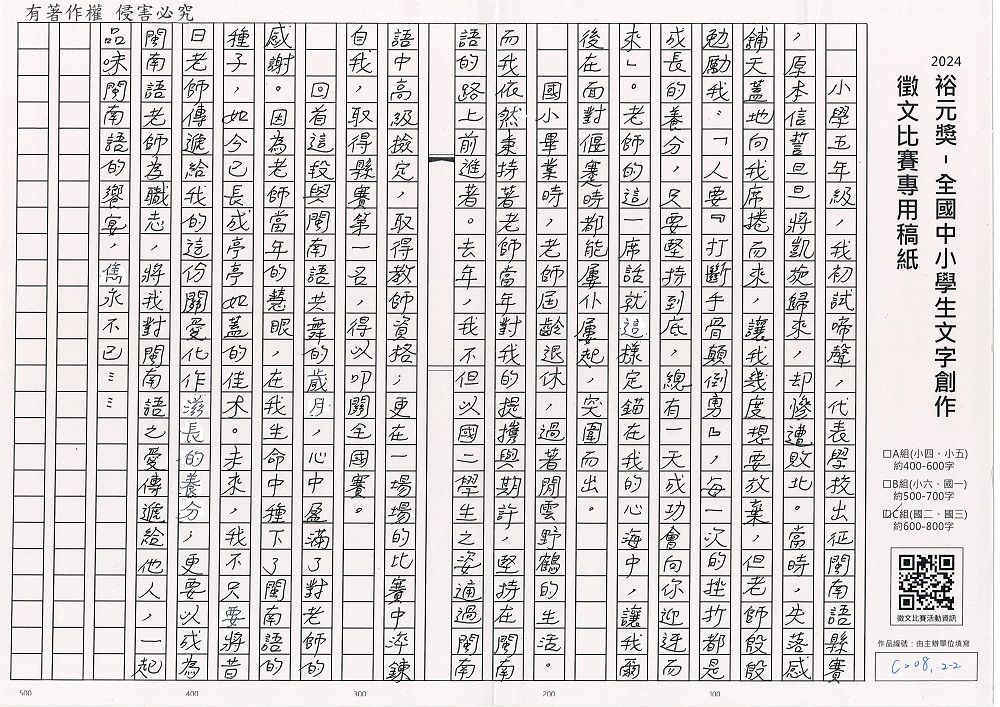 有著作權 侵害必究
2024
裕元獎-全國中小學生文字創作
徵文比賽專用稿紙
□A組(小四、小五)
約400-600字
□B組(小六、國一)
約500-700字
☑C組(國二、國三)
約600-800字
徵文比賽活動資訊
作品編號:由主辦單位填寫
C208, 2-2
小學五年級,我初試啼聲,代表學校出征閩南語縣賽
,原本信誓旦旦將凱旋歸來,卻慘遭敗北。當時,失落感
鋪天蓋地向我席捲而來,讓我幾度想要放棄,但老師殷殷
勉勵我:「人要『打斷手骨顛倒勇』,每一次的挫折都是
成長的養分,只要堅持到底,總有一天成功會向你迎迓而
來」。老師的這一席話就這樣定錨在我的心海中,讓我爾
後在面對偃蹇時都能屢仆屢起,突圍而出。
國小畢業時,老師屆齡退休,過著閒雲野鶴的生活。
而我依然秉持著老師當年對我的提攜與期許,堅持在閩南
語的路上前進著。去年,我不但以國二學生之姿通過閩南
語中高級檢定,取得教師資格;更在一場場的比賽中淬鍊
自我,取得縣賽第一名,得以叩關全國賽。
回首這段與閩南語共舞的歲月,心中盈滿了對老師的
感謝。因為老師當年的慧眼,在我生命中種下了閩南語的
種子,如今已長成亭亭如蓋的佳木。未來,我不只要將昔
日老師傳遞給我的這份關愛化作滋長的養分;更要以成為
閩南語老師為職志,將我對閩南語之愛傳遞給他人,一起
品味閩南語的饗宴,雋永不已……
100
200
300
400
500